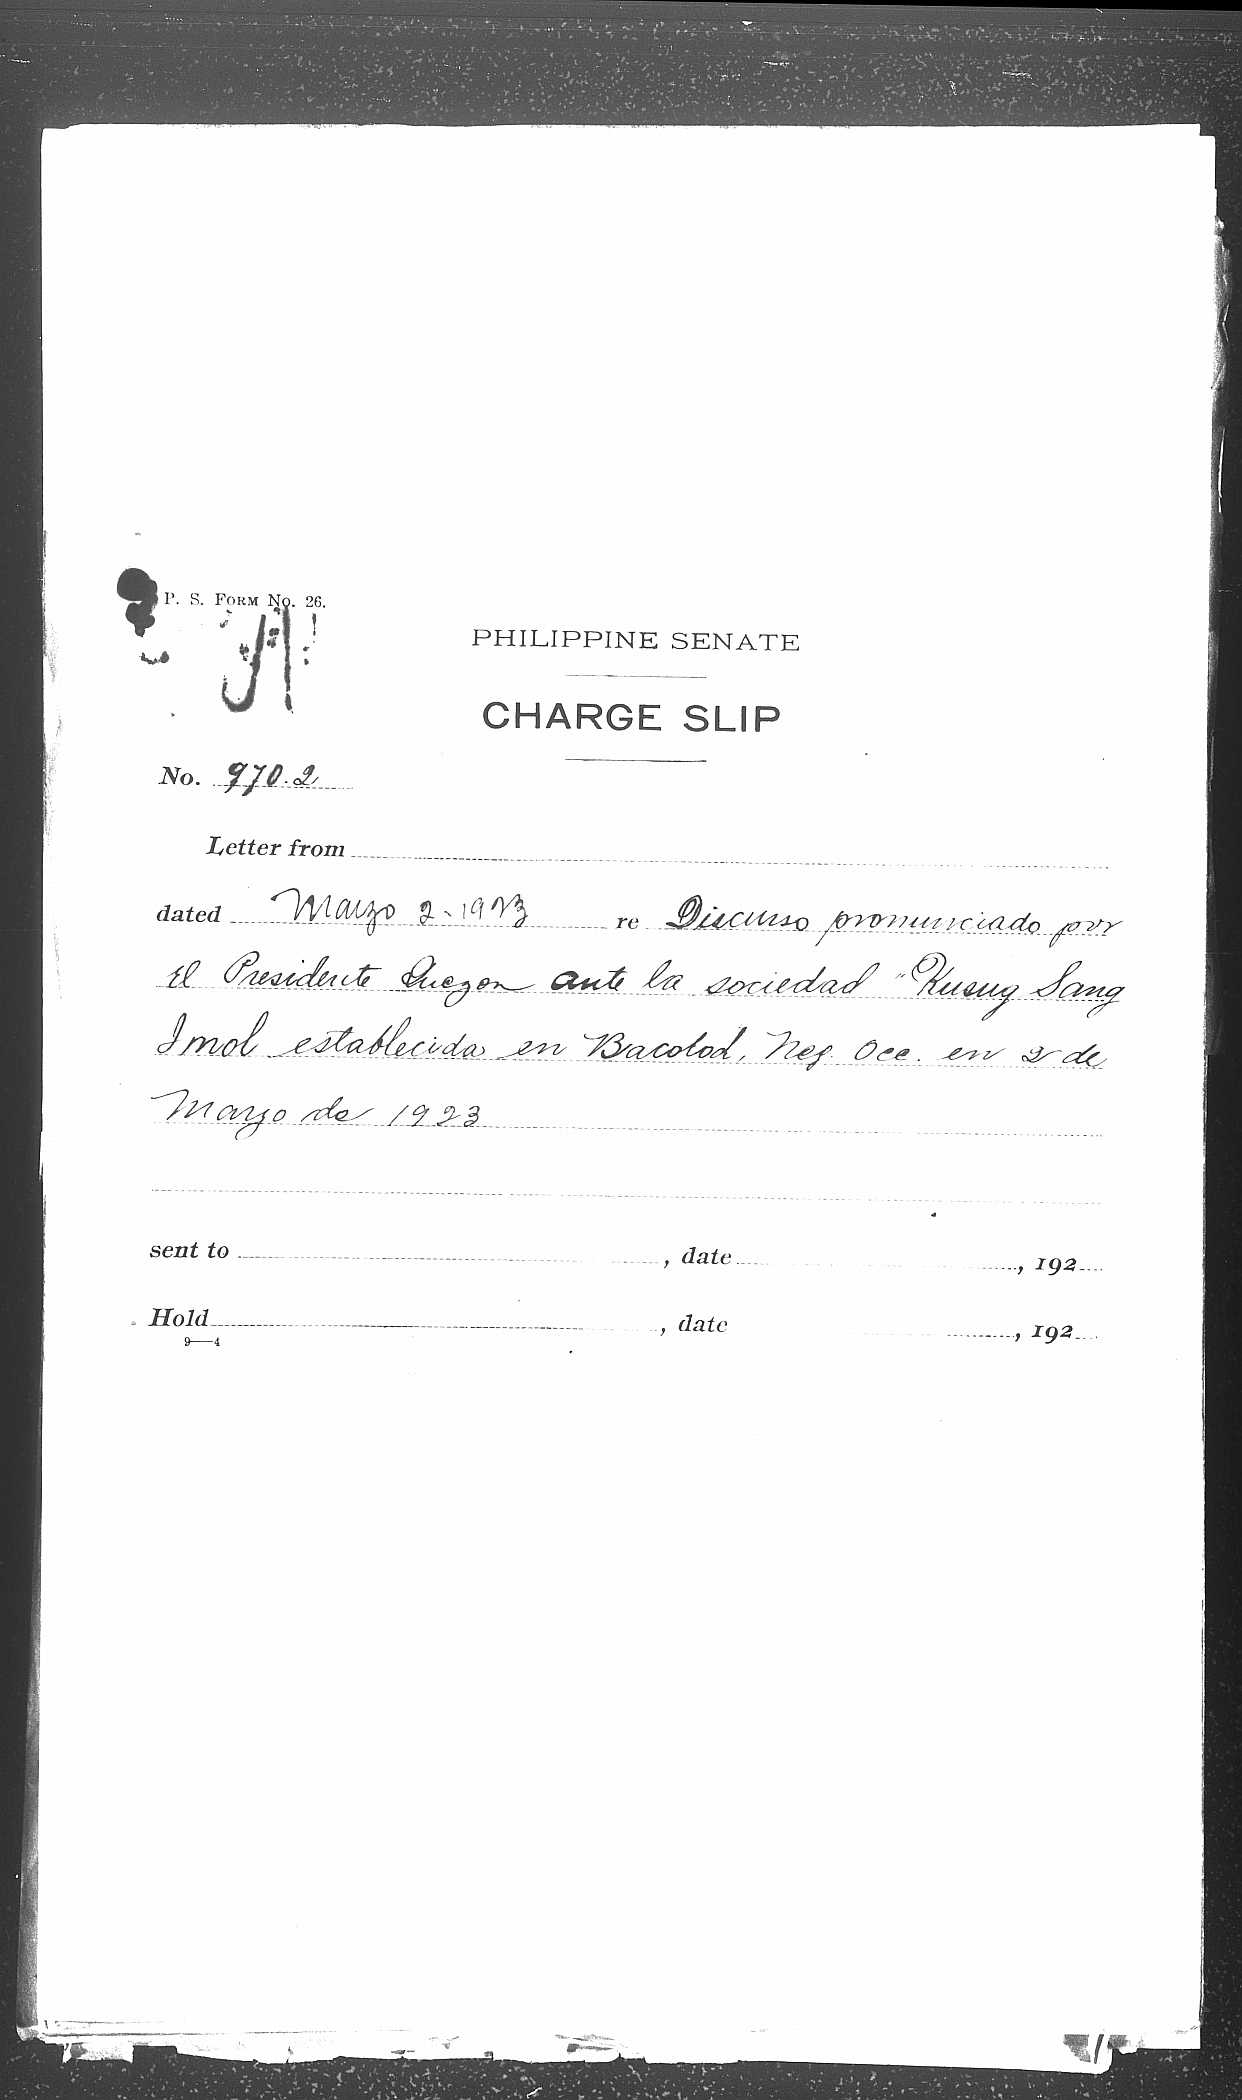 P. S. FORM No. 26.
PHILIPPINE SENATE
CHARGE SLIP
No. 970.2
Letter from
dated Marzo 2-1923 re Discurso pronunciado por
El Presidente Quezon ante la sociedad "Kusug Sang
Imol establecida en Bacolod, Neg. Occ. en 2 de
Marzo de 1923
sent to , date , 192
Hold , date , 192
9—4